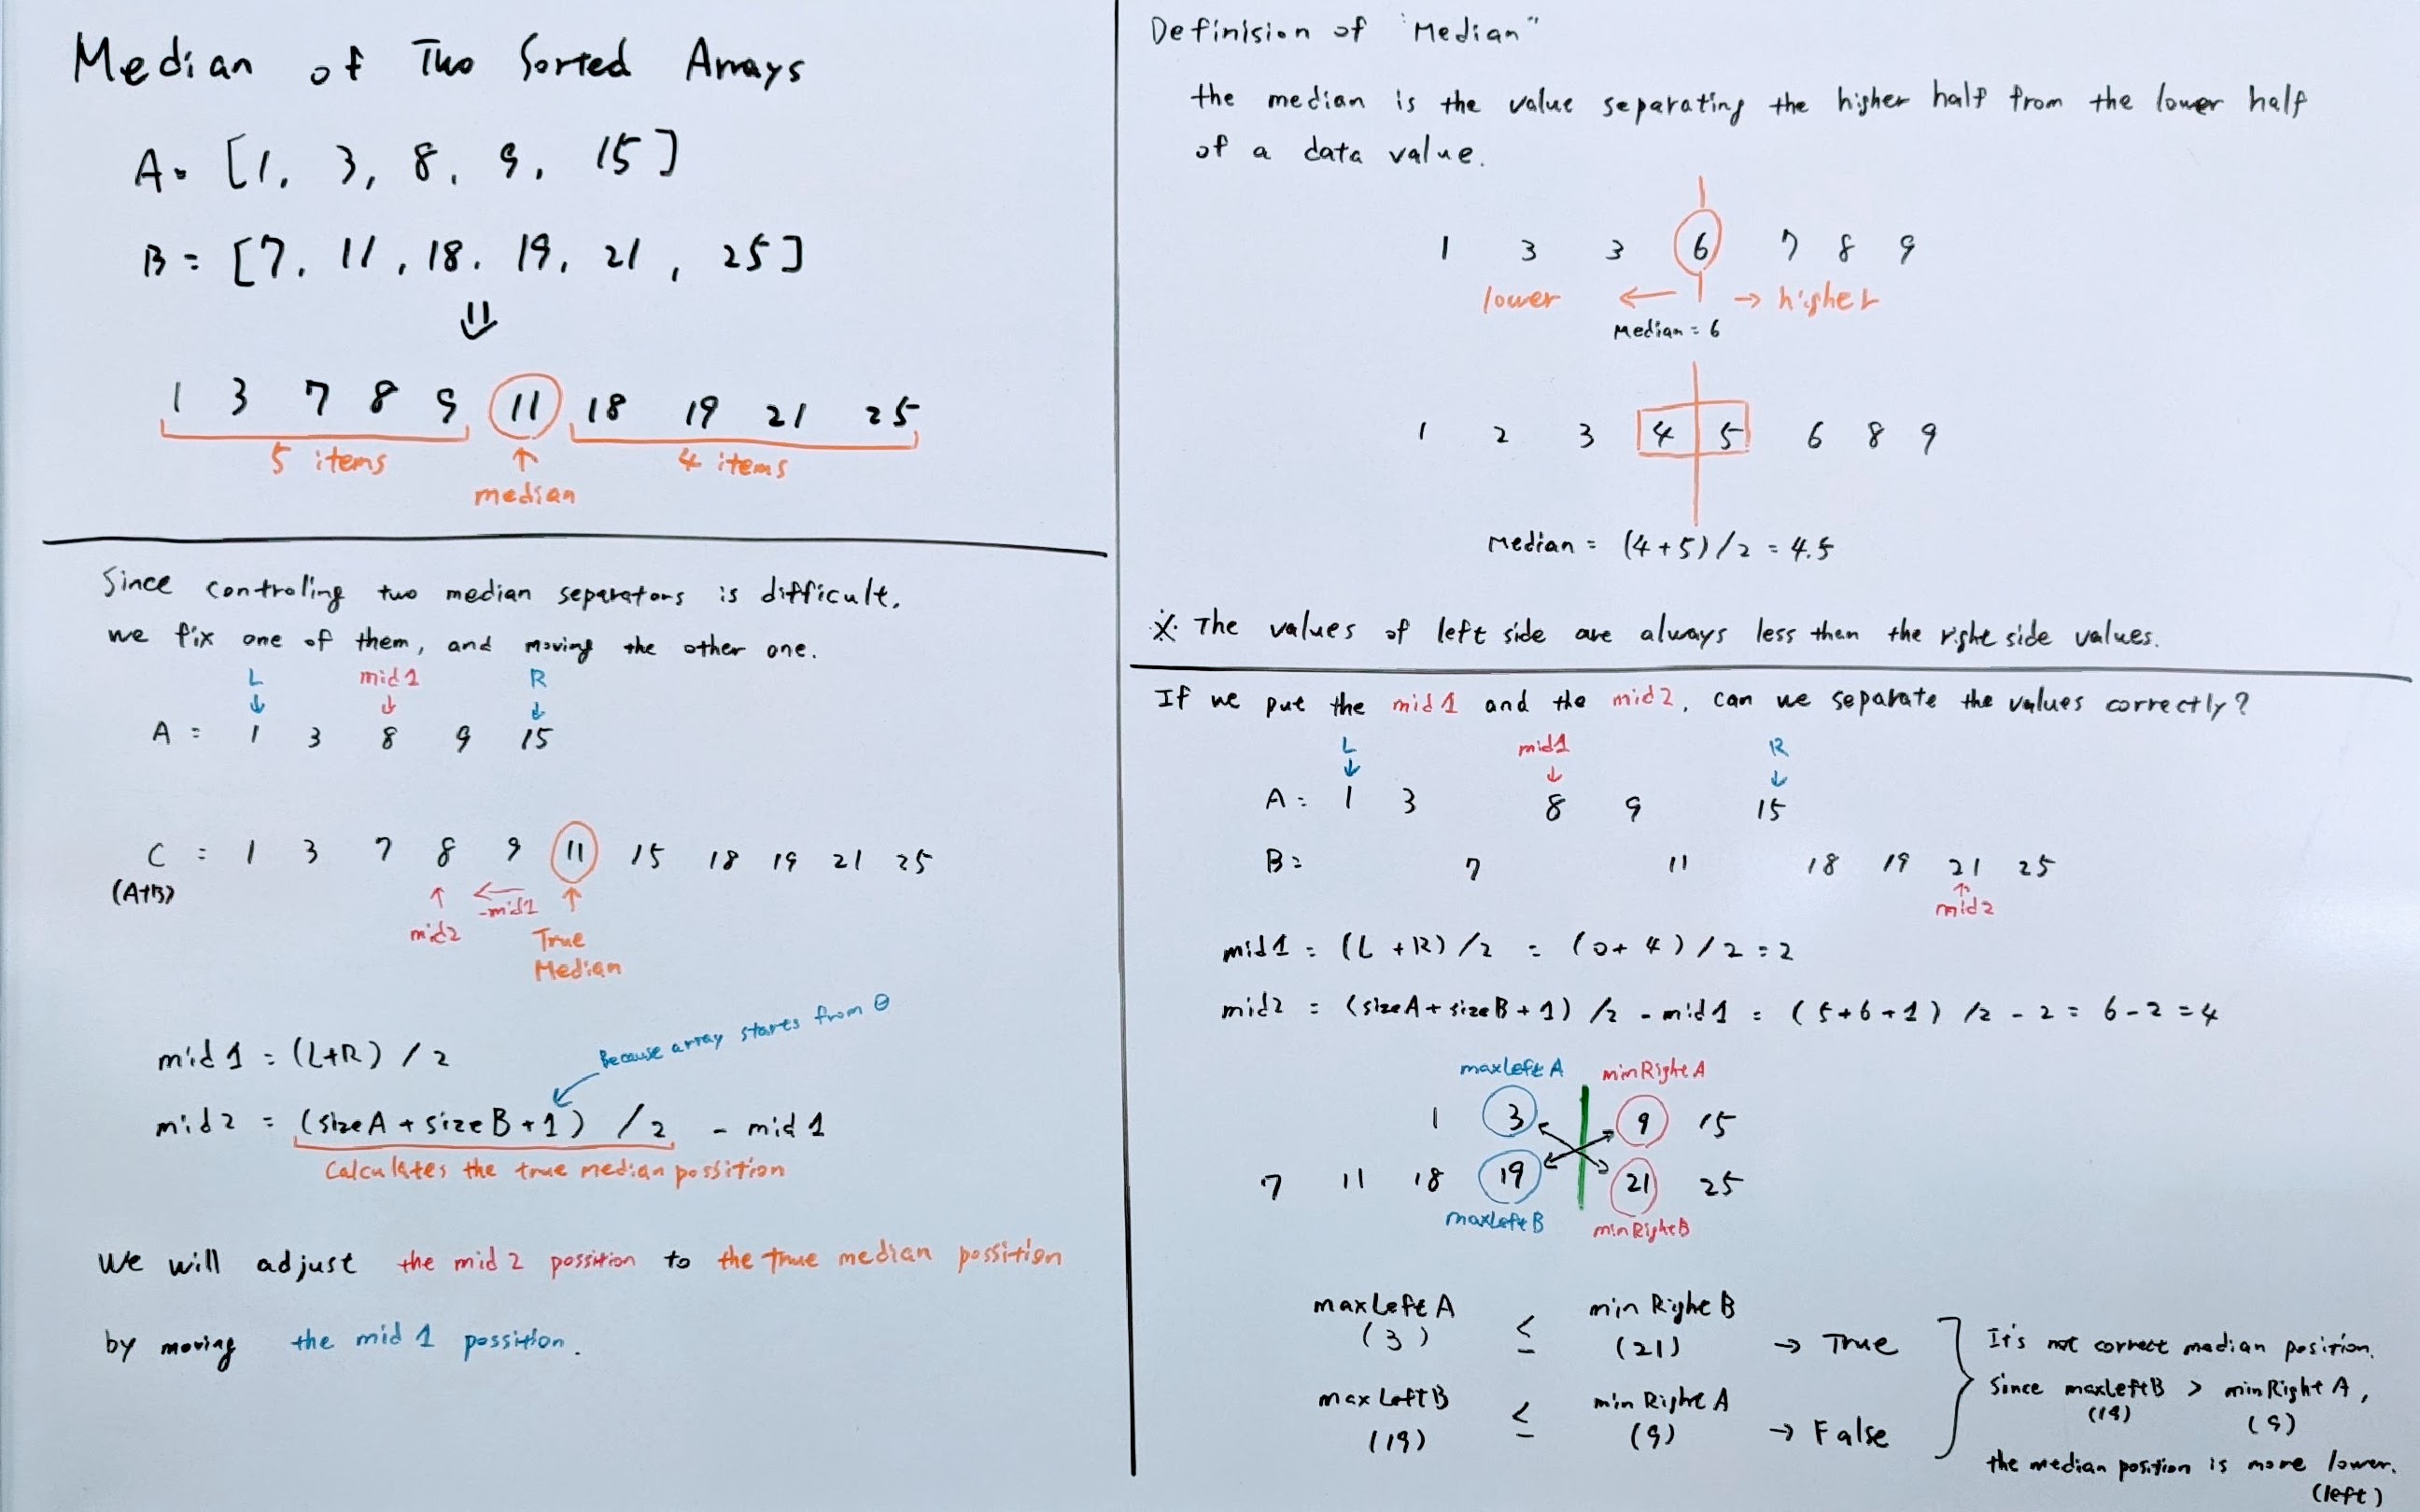 Median of Two Sorted Arrays
A= [1, 3, 8, 9, 15]
B = [7, 11, 18, 19, 21, 25]
⇓
1 3 7 8 9 11 18 19 21 25
5 items
4 items
↑
median
Since controling two median separators is difficult,
we fix one of them, and moving the other one.
L mid1 R
↓ ↓ ↓
A = 1 3 8 9 15
C = 1 3 7 8 9 11 15 18 19 21 25
(A+B)
↑ ← ↑
-mid1
mid2
True
Median
Because array starts from 0
mid1 = (L+R) / 2
mid2 = (sizeA + sizeB + 1) / 2 - mid1
Calculates the true median possition
We will adjust the mid2 possition to the true median possition
by moving the mid1 possition.
Definision of "Median"
the median is the value separating the higher half from the lower half
of a data value.
1 3 3 6 7 8 9
lower ← → higher
Median = 6
1 2 3 4 5 6 8 9
Median = (4+5)/2 = 4.5
※ The values of left side are always less then the right side values.
If we put the mid1 and the mid2, can we separate the values correctly?
L mid1 R
↓ ↓ ↓
A = 1 3 8 9 15
B = 7 11 18 19 21 25
↑
mid2
mid1 = (L + R) / 2 = (0 + 4) / 2 = 2
mid2 = (sizeA + sizeB + 1) / 2 - mid1 = (5+6+1) / 2 - 2 = 6 - 2 = 4
maxLeftA minRightA
1 3 9 15
7 11 18 19 21 25
maxLeftB minRightB
maxLeftA ≤ minRightB
(3) (21) → True
maxLeftB ≤ minRightA
(19) (9) → False
It's not correct median position.
Since maxLeftB > minRightA,
(19) (9)
the median position is more lower.
(left)